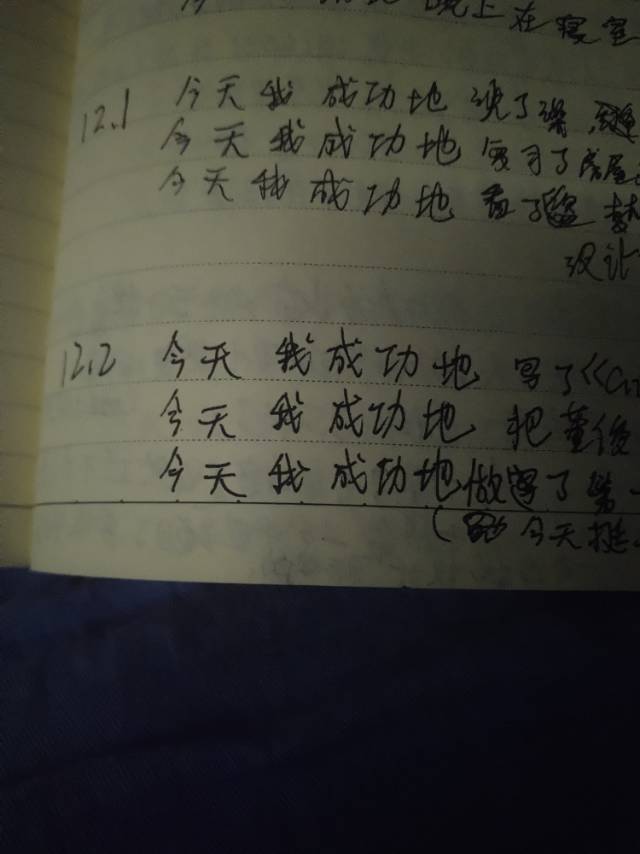 晚上在寝室
12.1 今天我成功地 洗了澡
今天我成功地 复习了房屋
今天我成功地 看了
设计
12.2 今天我成功地 写了《
今天我成功地 把董俊
今天我成功地 做了第一
( 今天挺